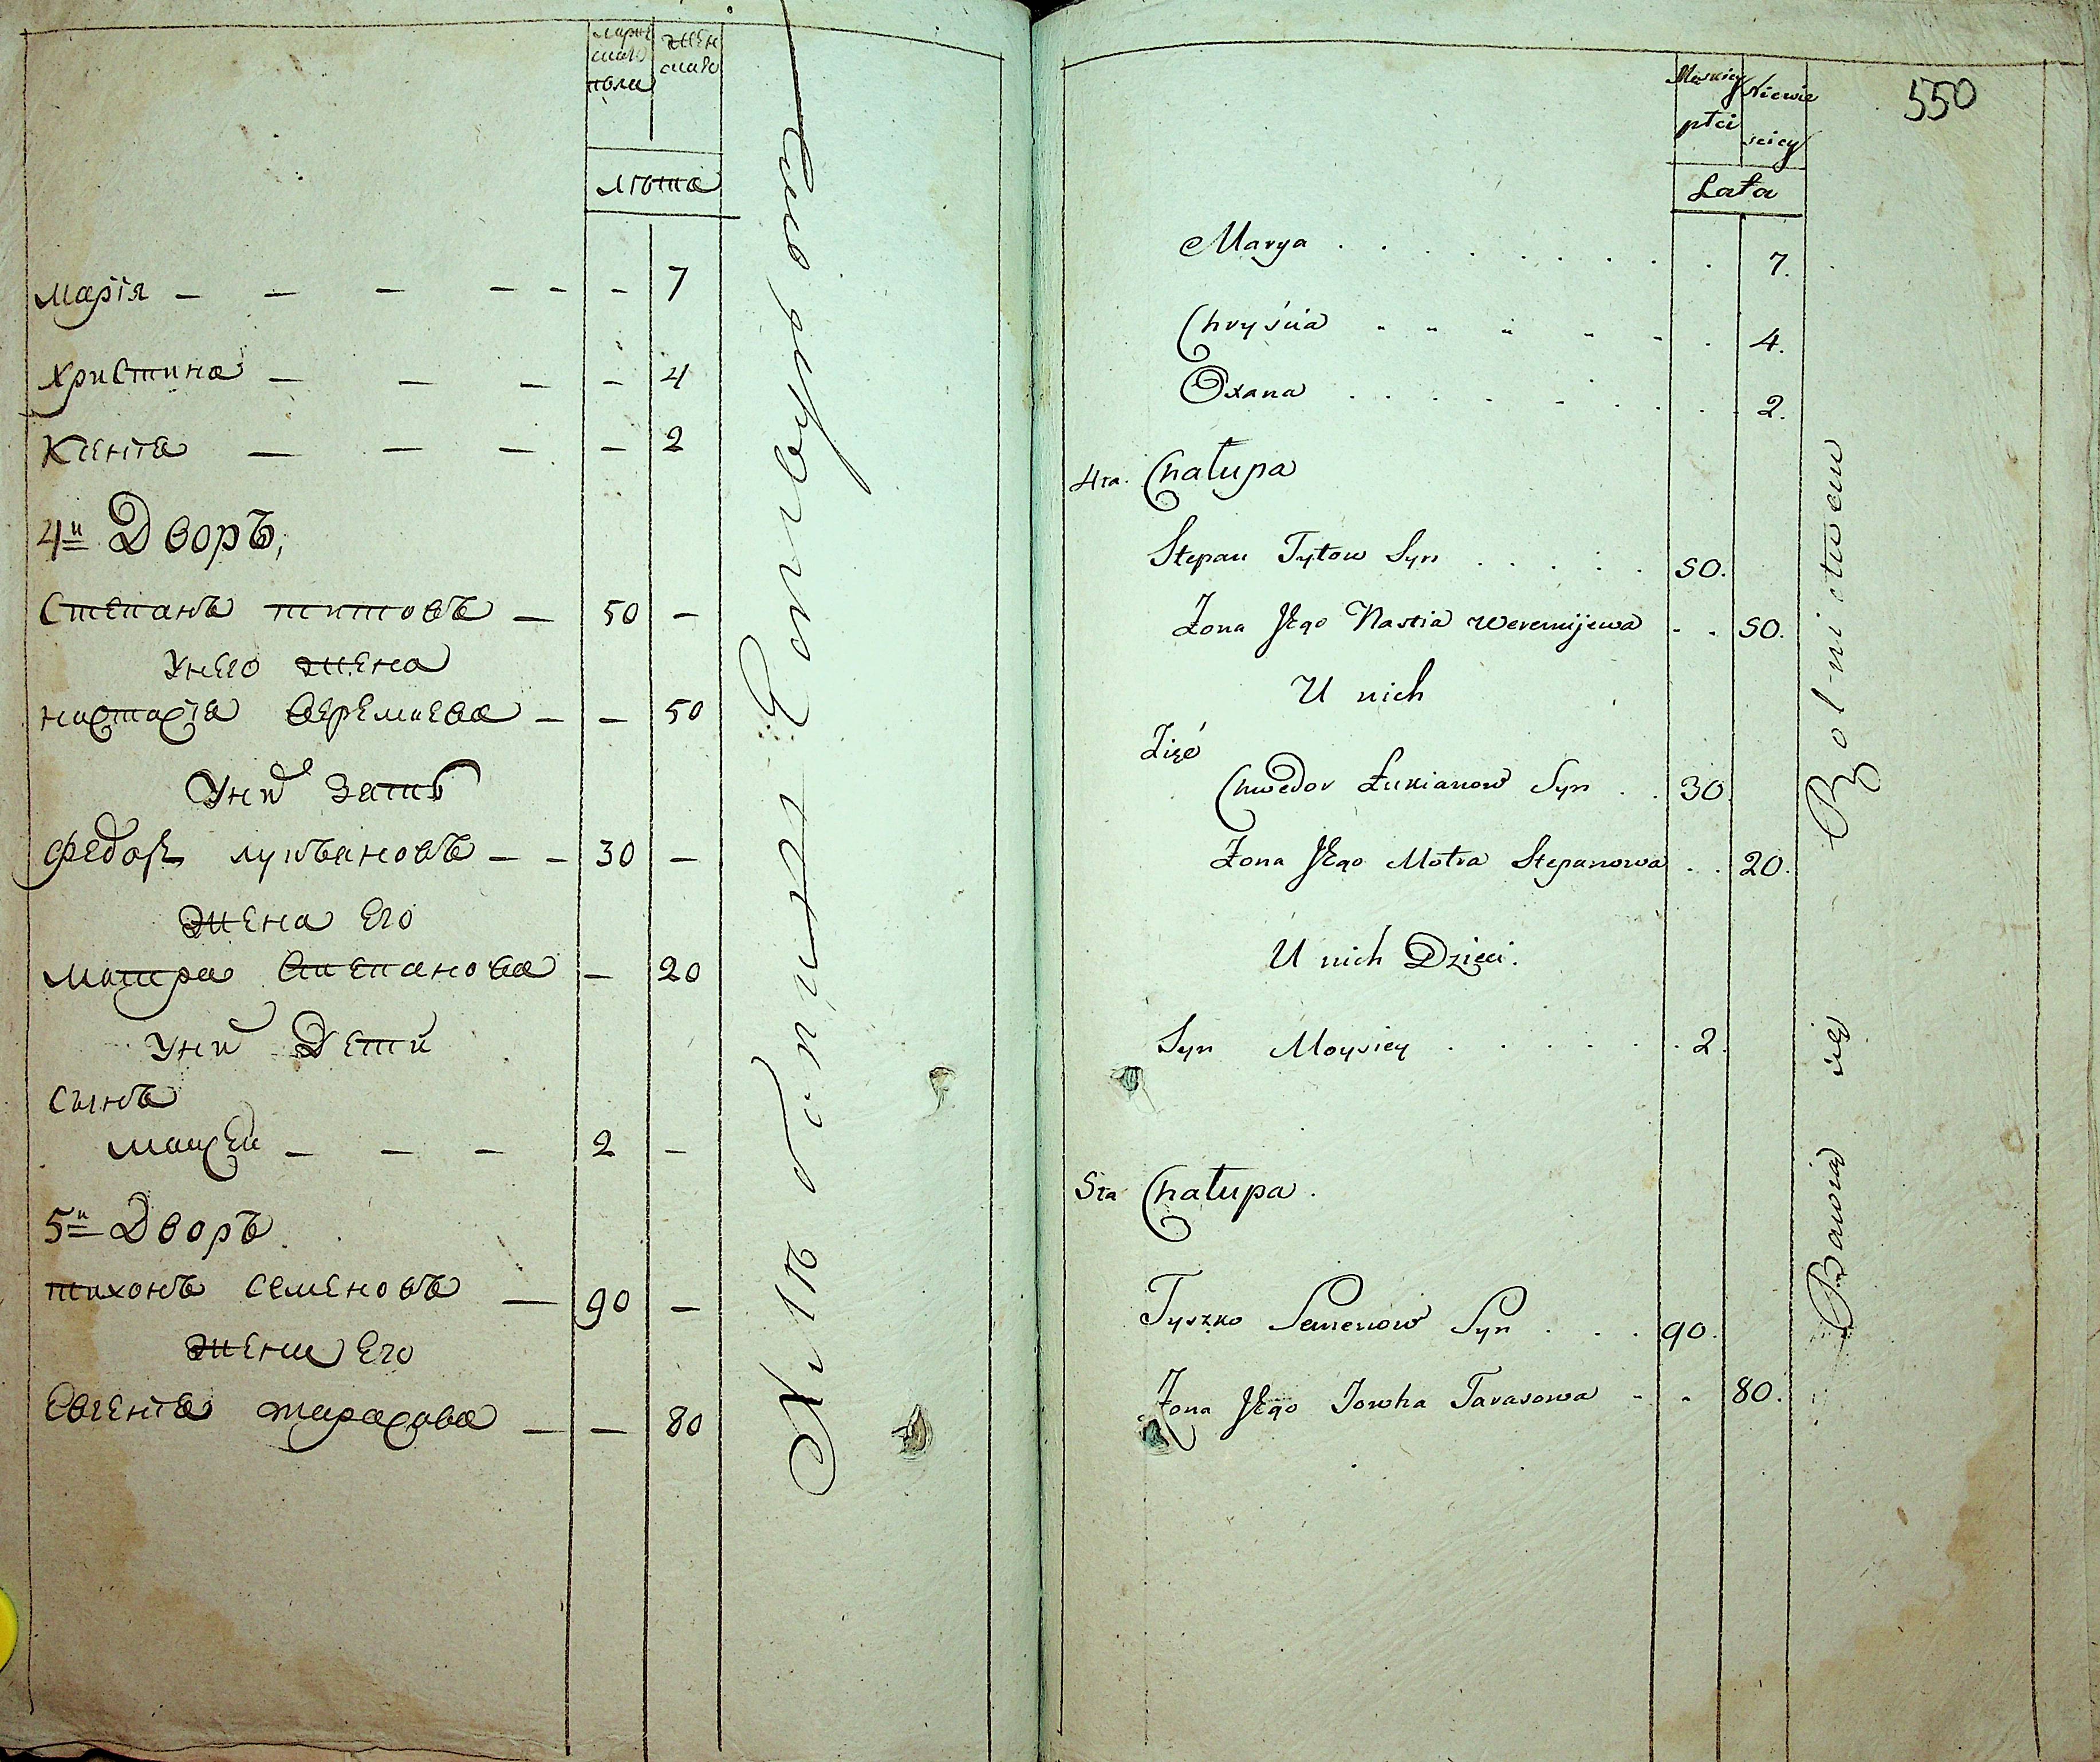 мужескаго пола
женскаго
лѣта
Марія — — — — — — 7
Христина — — — — 4
Ксенія — — — — 2
4й Дворъ,
Степанъ Титовъ — 50 —
У него жена
Настасія Веремиева — — 50
У ний Зать
Федоръ Лукьяновъ — — 30 —
Жена Его
Матра Степанова — 20
У ний Дети
Сынъ
Моисей — — — 2 —
5й Дворъ
Тихонъ Семеновъ — 90 —
Жена Его
Евгенія Тарасова — — 80
550
Męskiey płci
Niewieściey
Lata
Marya . . . . . . . . 7.
Chryścia . . . . . . 4.
Oxana . . . . . . . 2.
4ta. Chałupa
Stepan Tytow Syn . . . . . 50.
Żona Jego Nastia Weremijewa . . 50.
U nich
Zięć
Chwedor Łukianow Syn . . 30.
Żona Jego Motra Stepanowa . . 20.
U nich Dzieci.
Syn Moysiey . . . . . . 2.
5ta Chałupa.
Tyszko Semenow Syn . . . 90.
Żona Jego Jowha Tarasowa . . 80.
Bawią się Rolnictwem